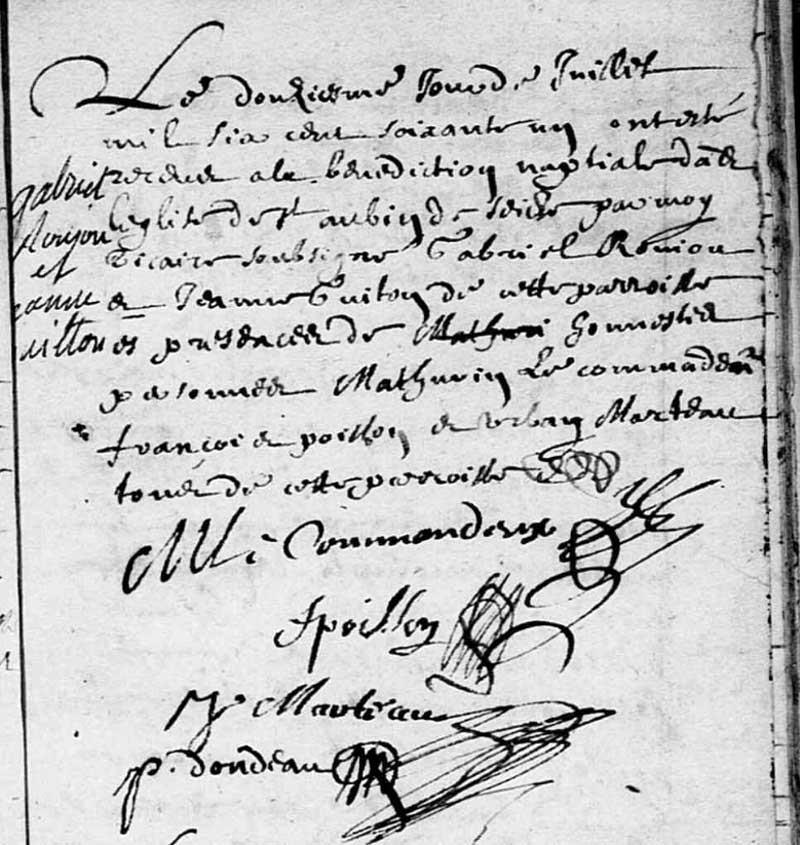 Le douziesme Jour de Juillet
mil six cent soixante un ont esté
receus a la benediction nuptiale dans
leglise de St aubin de seiche par moy
vicaire soubsigne Gabriel Rouiou
et Jeanne Guiton de cette parroisse
es presances de Mathuri honnestes
personnes Mathurin Le commandeur
françois poisson et urban Marteau
tous de cette parroisse
gabriel
et
M Le Commandeux
f poisson
Marteau
p. dondeau